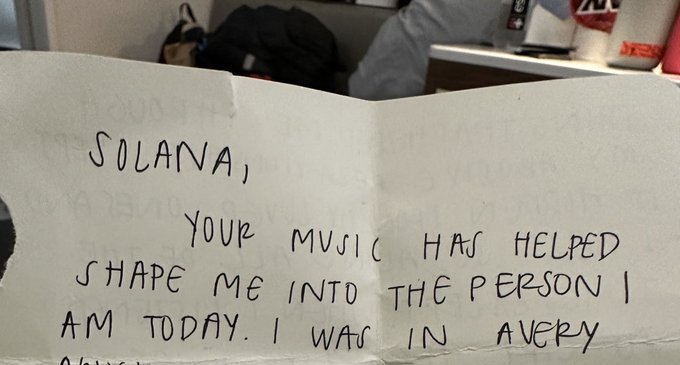 SOLANA,
YOUR MUSIC HAS HELPED
SHAPE ME INTO THE PERSON I
AM TODAY. I WAS IN AVERY